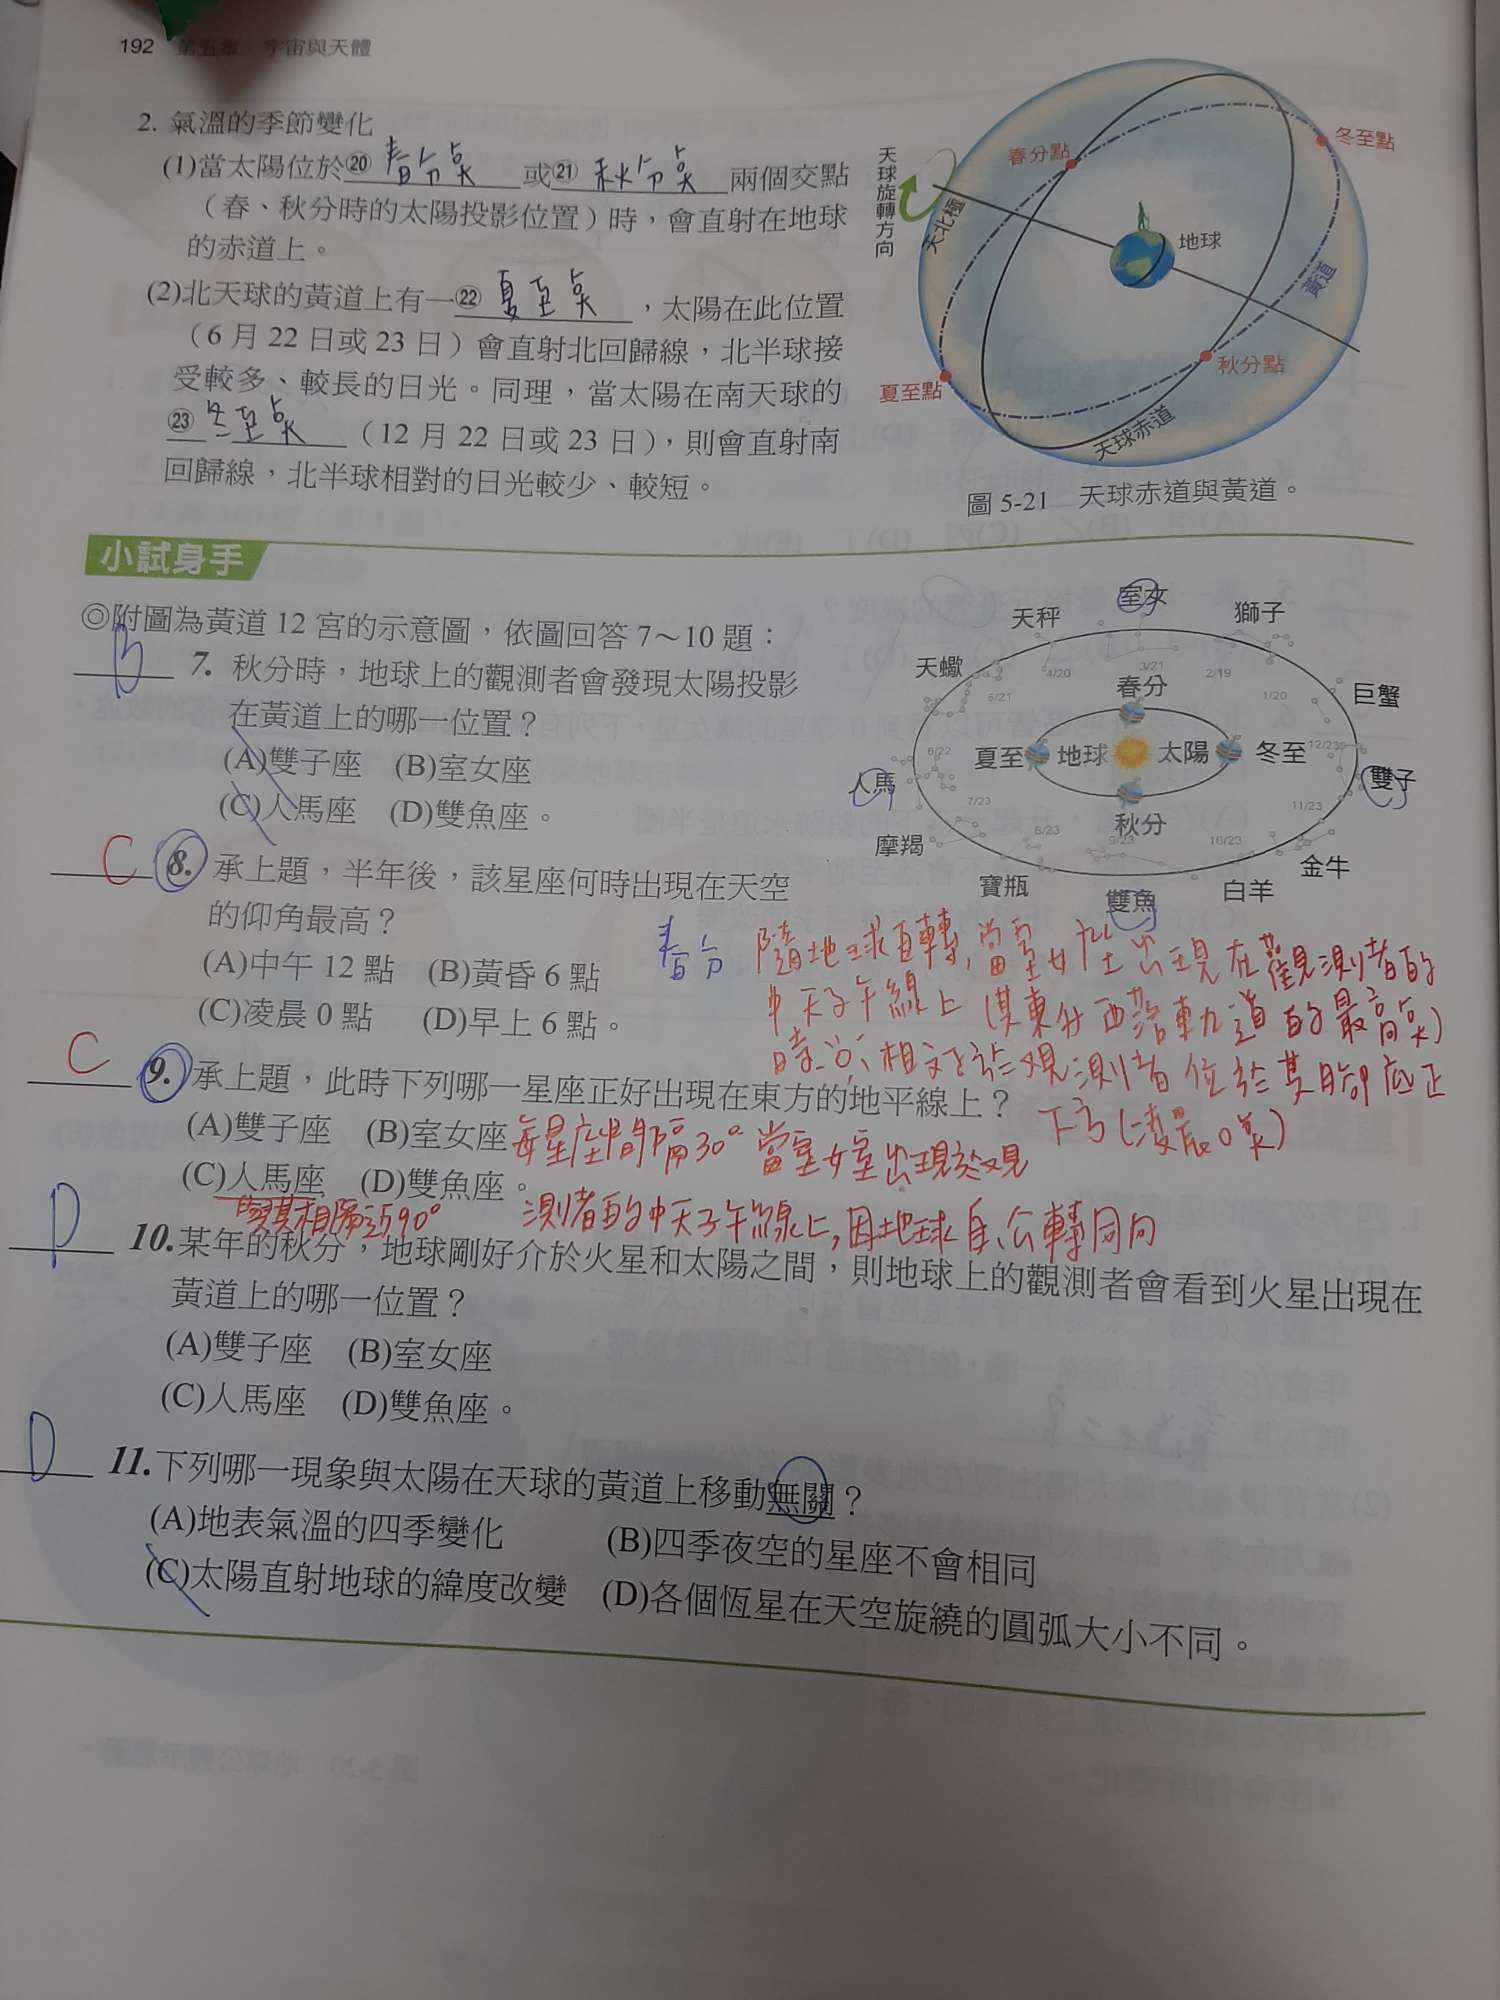 192 第五章 宇宙與天體
2. 氣溫的季節變化
(1)當太陽位於⑳ 春分點 或㉑ 秋分點 兩個交點
（春、秋分時的太陽投影位置）時，會直射在地球
的赤道上。
(2)北天球的黃道上有一㉒ 夏至點 ，太陽在此位置
（6 月 22 日或 23 日）會直射北回歸線，北半球接
受較多、較長的日光。同理，當太陽在南天球的
㉓ 冬至點 （12 月 22 日或 23 日），則會直射南
回歸線，北半球相對的日光較少、較短。
天球旋轉方向
天北極
春分點
冬至點
地球
黃道
秋分點
夏至點
天球赤道
圖 5-21 天球赤道與黃道。
小試身手
◎附圖為黃道 12 宮的示意圖，依圖回答 7～10 題：
B 7. 秋分時，地球上的觀測者會發現太陽投影
在黃道上的哪一位置？
(A)雙子座 (B)室女座
(C)人馬座 (D)雙魚座。
天秤 室女 獅子
天蠍 5/21 4/20 3/21 2/19 1/20 巨蟹
春分
6/22 夏至 地球 太陽 冬至 12/23
人馬 雙子
7/23 秋分 11/23
摩羯 8/23 9/23 10/23 金牛
寶瓶 雙魚 白羊
C 8. 承上題，半年後，該星座何時出現在天空
的仰角最高？
(A)中午 12 點 (B)黃昏 6 點
(C)凌晨 0 點 (D)早上 6 點。
春分
隨地球自轉，當室女座出現在觀測者的
中天子午線上（其東升西落軌道的最高點）
時，相對於觀測者位於其腳底正
下方（凌晨0點）
C 9. 承上題，此時下列哪一星座正好出現在東方的地平線上？
(A)雙子座 (B)室女座
(C)人馬座 (D)雙魚座。
每星座間隔30° 當室女室出現於觀
測者的中天子午線上，因地球自、公轉同向
與其相隔90°
D 10.某年的秋分，地球剛好介於火星和太陽之間，則地球上的觀測者會看到火星出現在
黃道上的哪一位置？
(A)雙子座 (B)室女座
(C)人馬座 (D)雙魚座。
D 11.下列哪一現象與太陽在天球的黃道上移動無關？
(A)地表氣溫的四季變化 (B)四季夜空的星座不會相同
(C)太陽直射地球的緯度改變 (D)各個恆星在天空旋繞的圓弧大小不同。